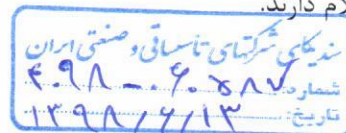 لام دارند.
سندیکای شرکتهای تاسیساتی و صنعتی ایران
شماره: ۴۰۹۸ - ۰۶۰۵۸۷
تاریخ: ۱۳۹۸/۶/۱۳